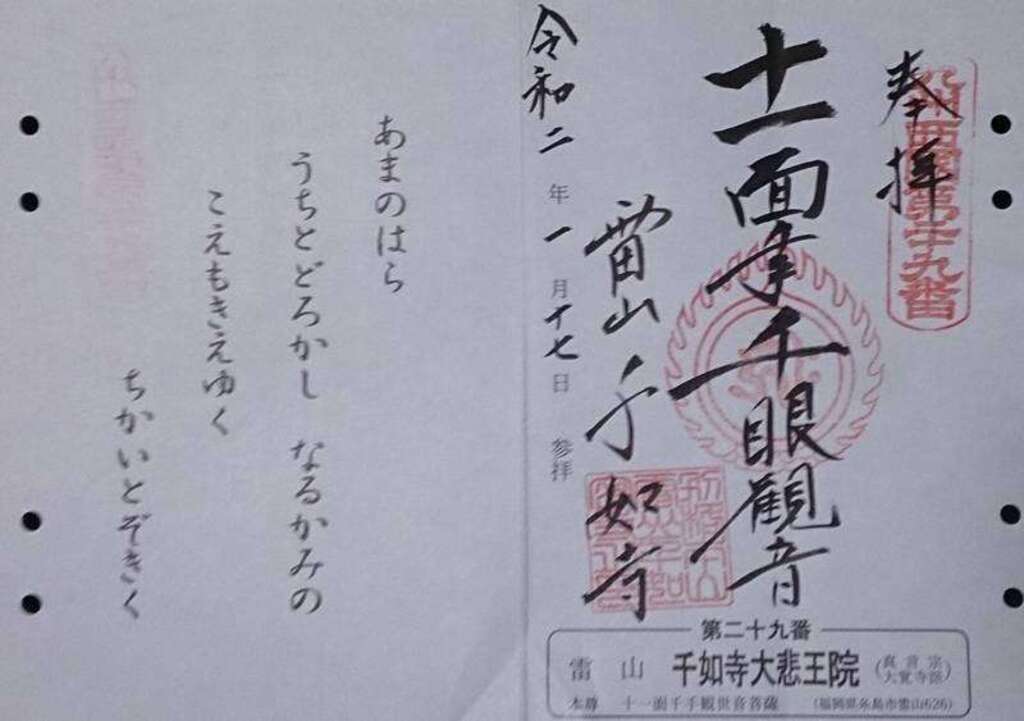 奉拝
九州西国第二十九番
十一面千手千眼観音
雷山千如寺
令和二年一月十七日 参拝
第二十九番
雷山 千如寺大悲王院 (真言宗 大覚寺派)
本尊 十一面千手観世音菩薩 (福岡県糸島市雷山626)
あまのはら
うちとどろかし なるかみの
こえもきえゆく
ちかいとぞきく